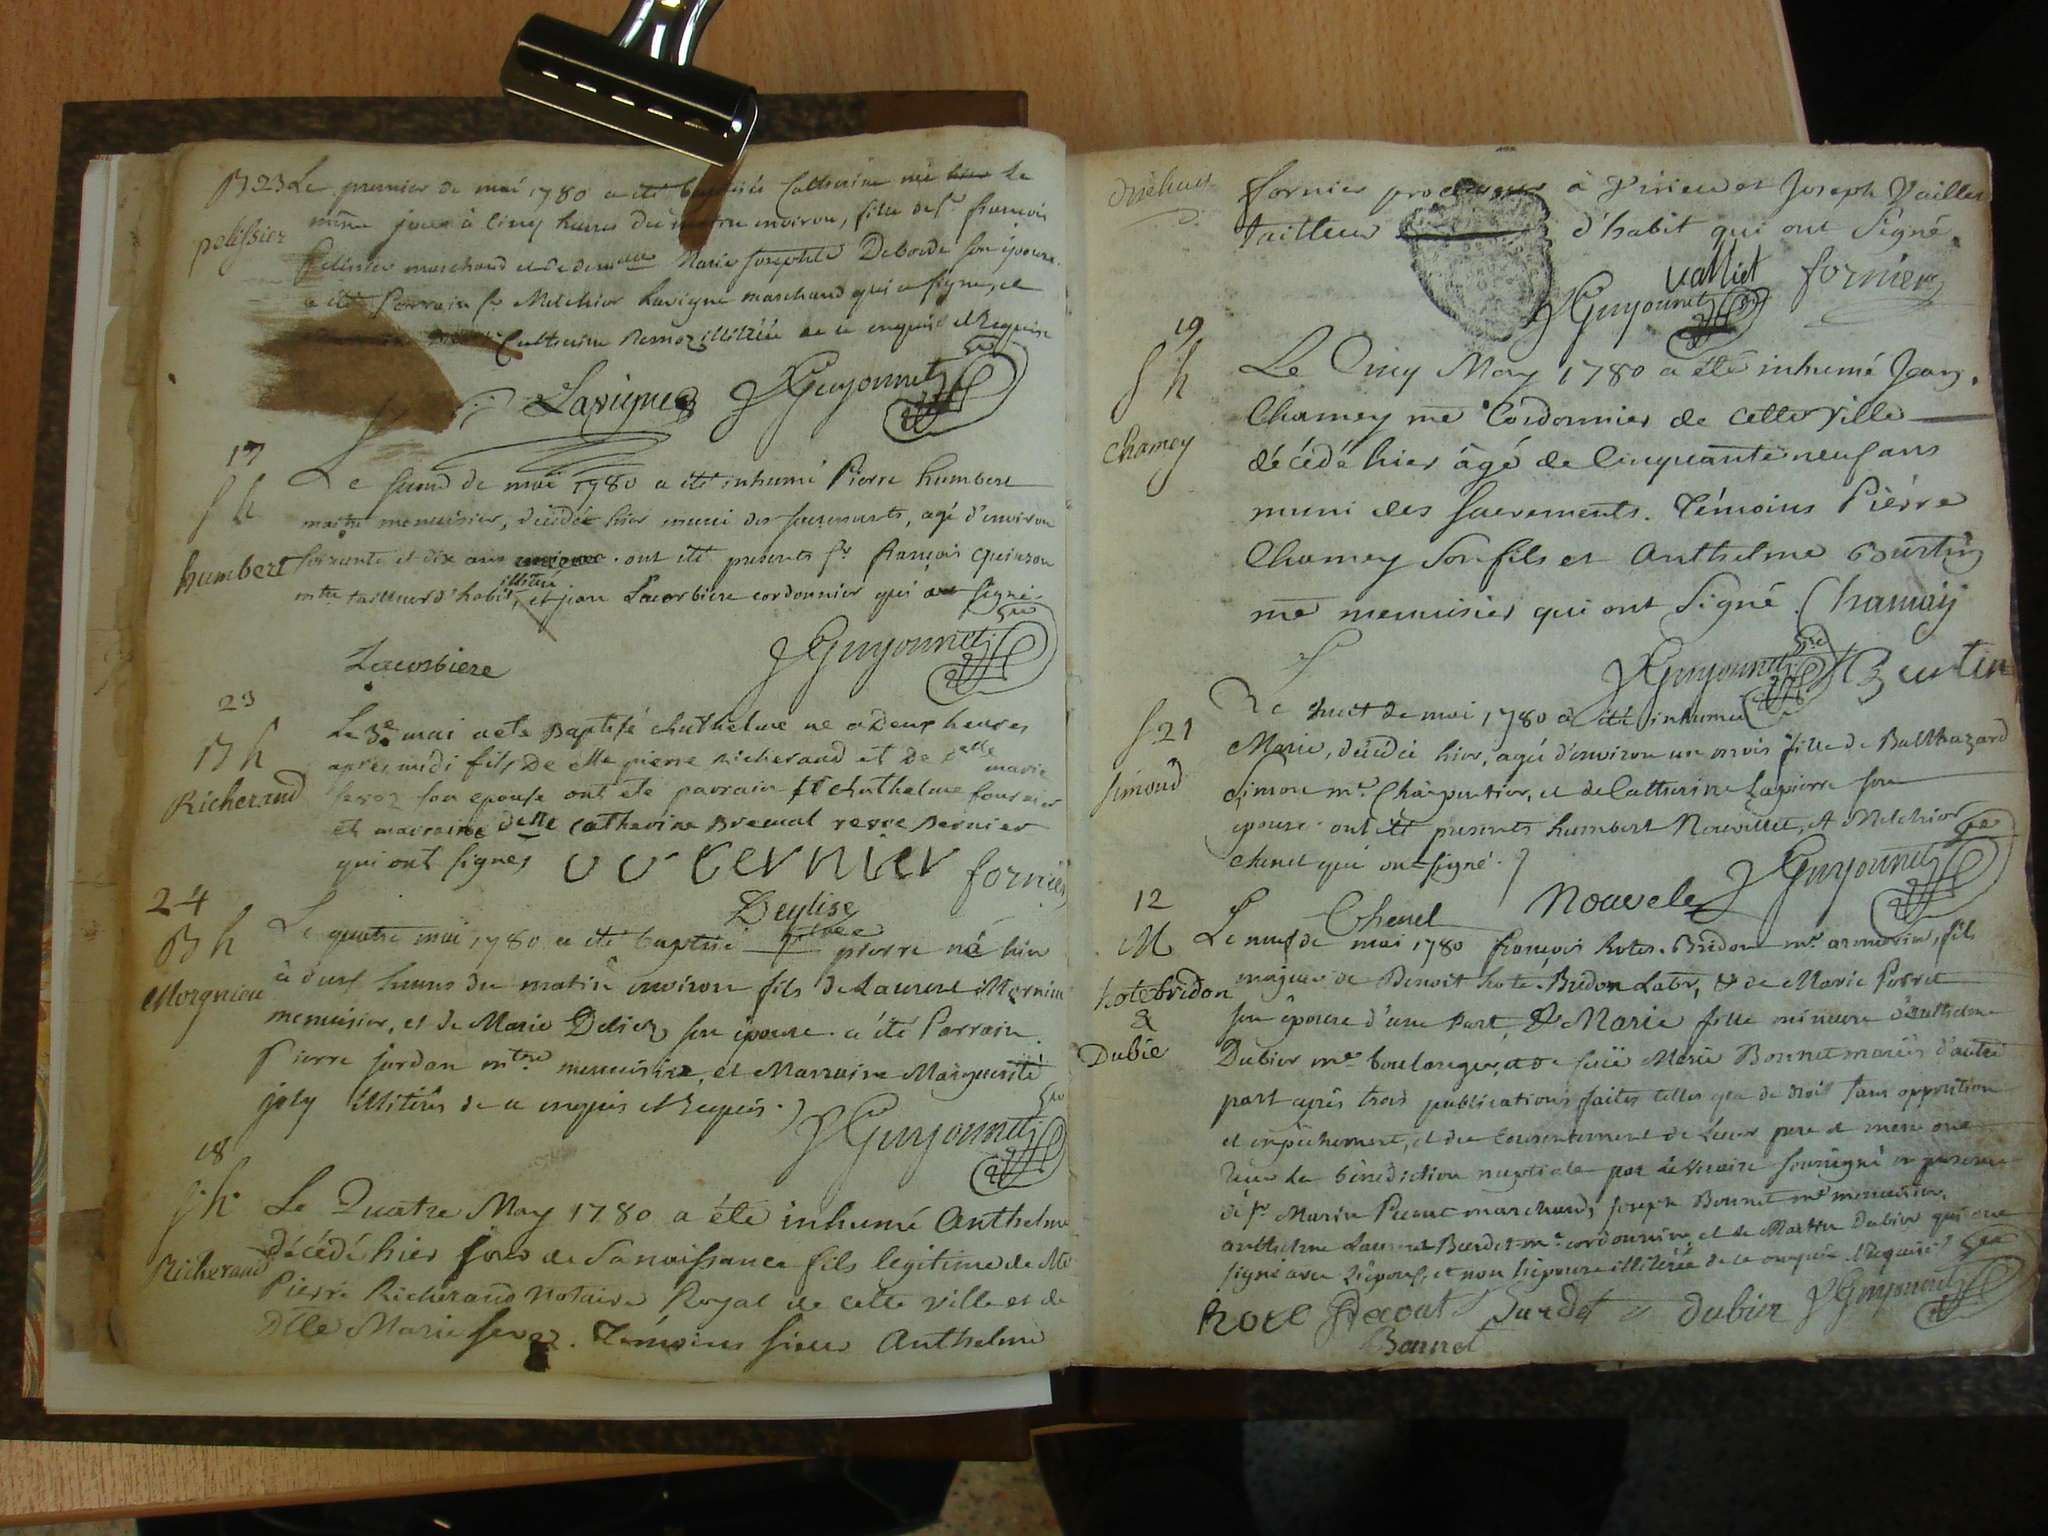 B 23 Le premier de mai 1780 a été baptisée Catherine née hier le
même jour à cinq heures du matin environ, fille de sr. françois
pelissier
Pelissier marchand et de demlle Marie Josephte Deborde son épouse.
a été Parrain sr Melchior Lavigne marchand qui a signé, et
Catherine Remoz illitérée de ce enquise et Requise
Lavigne Guyonnet
17
S h
Le second de mai 1780 a été inhumé Pierre humbert
maitre menuisier, décédé hier muni des sacrements, agé d'environ
humbert
soixante et dix ans ont été presents sr françois Quinson
illitéré
mtre tailleur d'habit, et jean Lacorbiere cordonnier qui a signé.
Lacorbiere Guyonnet
23
B h
Richerand
Le 3e mai a ete Baptisé Anthelme ne a Deux heures
apres midi fils De Me pierre richerand et De Delle marie
servoz son epouse ont ete parrain sr Anthelme fournier
et maraine Delle catherine Brecual Bernier
qui ont signes Bernier fornier
24
B h
Morgniou
D'eglise
Le quatre mai 1780 a été baptisé pierre né hier
à onze heures du matin environ fils de Laurent Mornieu
menuisier, et de Marie Deliez son épouse. a été Parrain
Pierre jordan mtre menuisier, et Marraine Marguerite
joly illitérés de ce enquis et Requis.
Guyonnet
18
S. h.
Richerand
Le Quatre May 1780 a été inhumé Anthelme
décédé hier jour de sa naissance fils legitime de Me
Pierre Richerand Notaire Royal de cette ville et de
Dlle Marie servoz. Témoins sieur Anthelme
fornier procureur à Virieu et Joseph Vaillet
tailleur d'habit qui ont Signé.
valliet fornier
Guyonnet
19
S h
Chamey
Le Cinq May 1780 a été inhumé Jean
Chamey me Cordonnier de cette ville
décédé hier âgé de Cinquante neuf ans
muni des sacrements. Témoins Pierre
Chamey son fils et Anthelme Burtin
me menuisier qui ont signé. Chamay
Guyonnet Burtin
S 21
Simond
Le huit de mai 1780 a été inhumée
Marie, décédée hier, agée d'environ un mois fille de Balthazard
Simon me. Charpentier, et de Catherine Lapierre son
epouse. ont été presents humbert Nouvellet, et Melchior
Chenet qui ont signé.
Chenel Nouvele Guyonnet
12
M
hotebridon
&
Dubie
Le neuf de mai 1780 françois hote-Bridon me armurier, fils
majeur de Benoit hote-Bridon Labr, & de Marie Perret
son épouse d'une part & Marie fille mineure d'Anthelme
Dubier me boulanger, et de feüe Marie Bonnet mariés d'autre
part après trois publications faites telles que de droit sans opposition
et empêchement, et du consentement de leur pere et mere ont
reçu la bénédiction nuptiale par le vicaire soussigné en presence
de sr. Marin Picout marchand, joseph Bonnet me menuisier,
anthelme Laurent Burdet me. cordonnier et de Martin Dubier qui ont
signé avec l'époux, et non l'épouse illitérée de ce enquise et Requise
hote Burdet Dubier Guyonnet
Bonnet